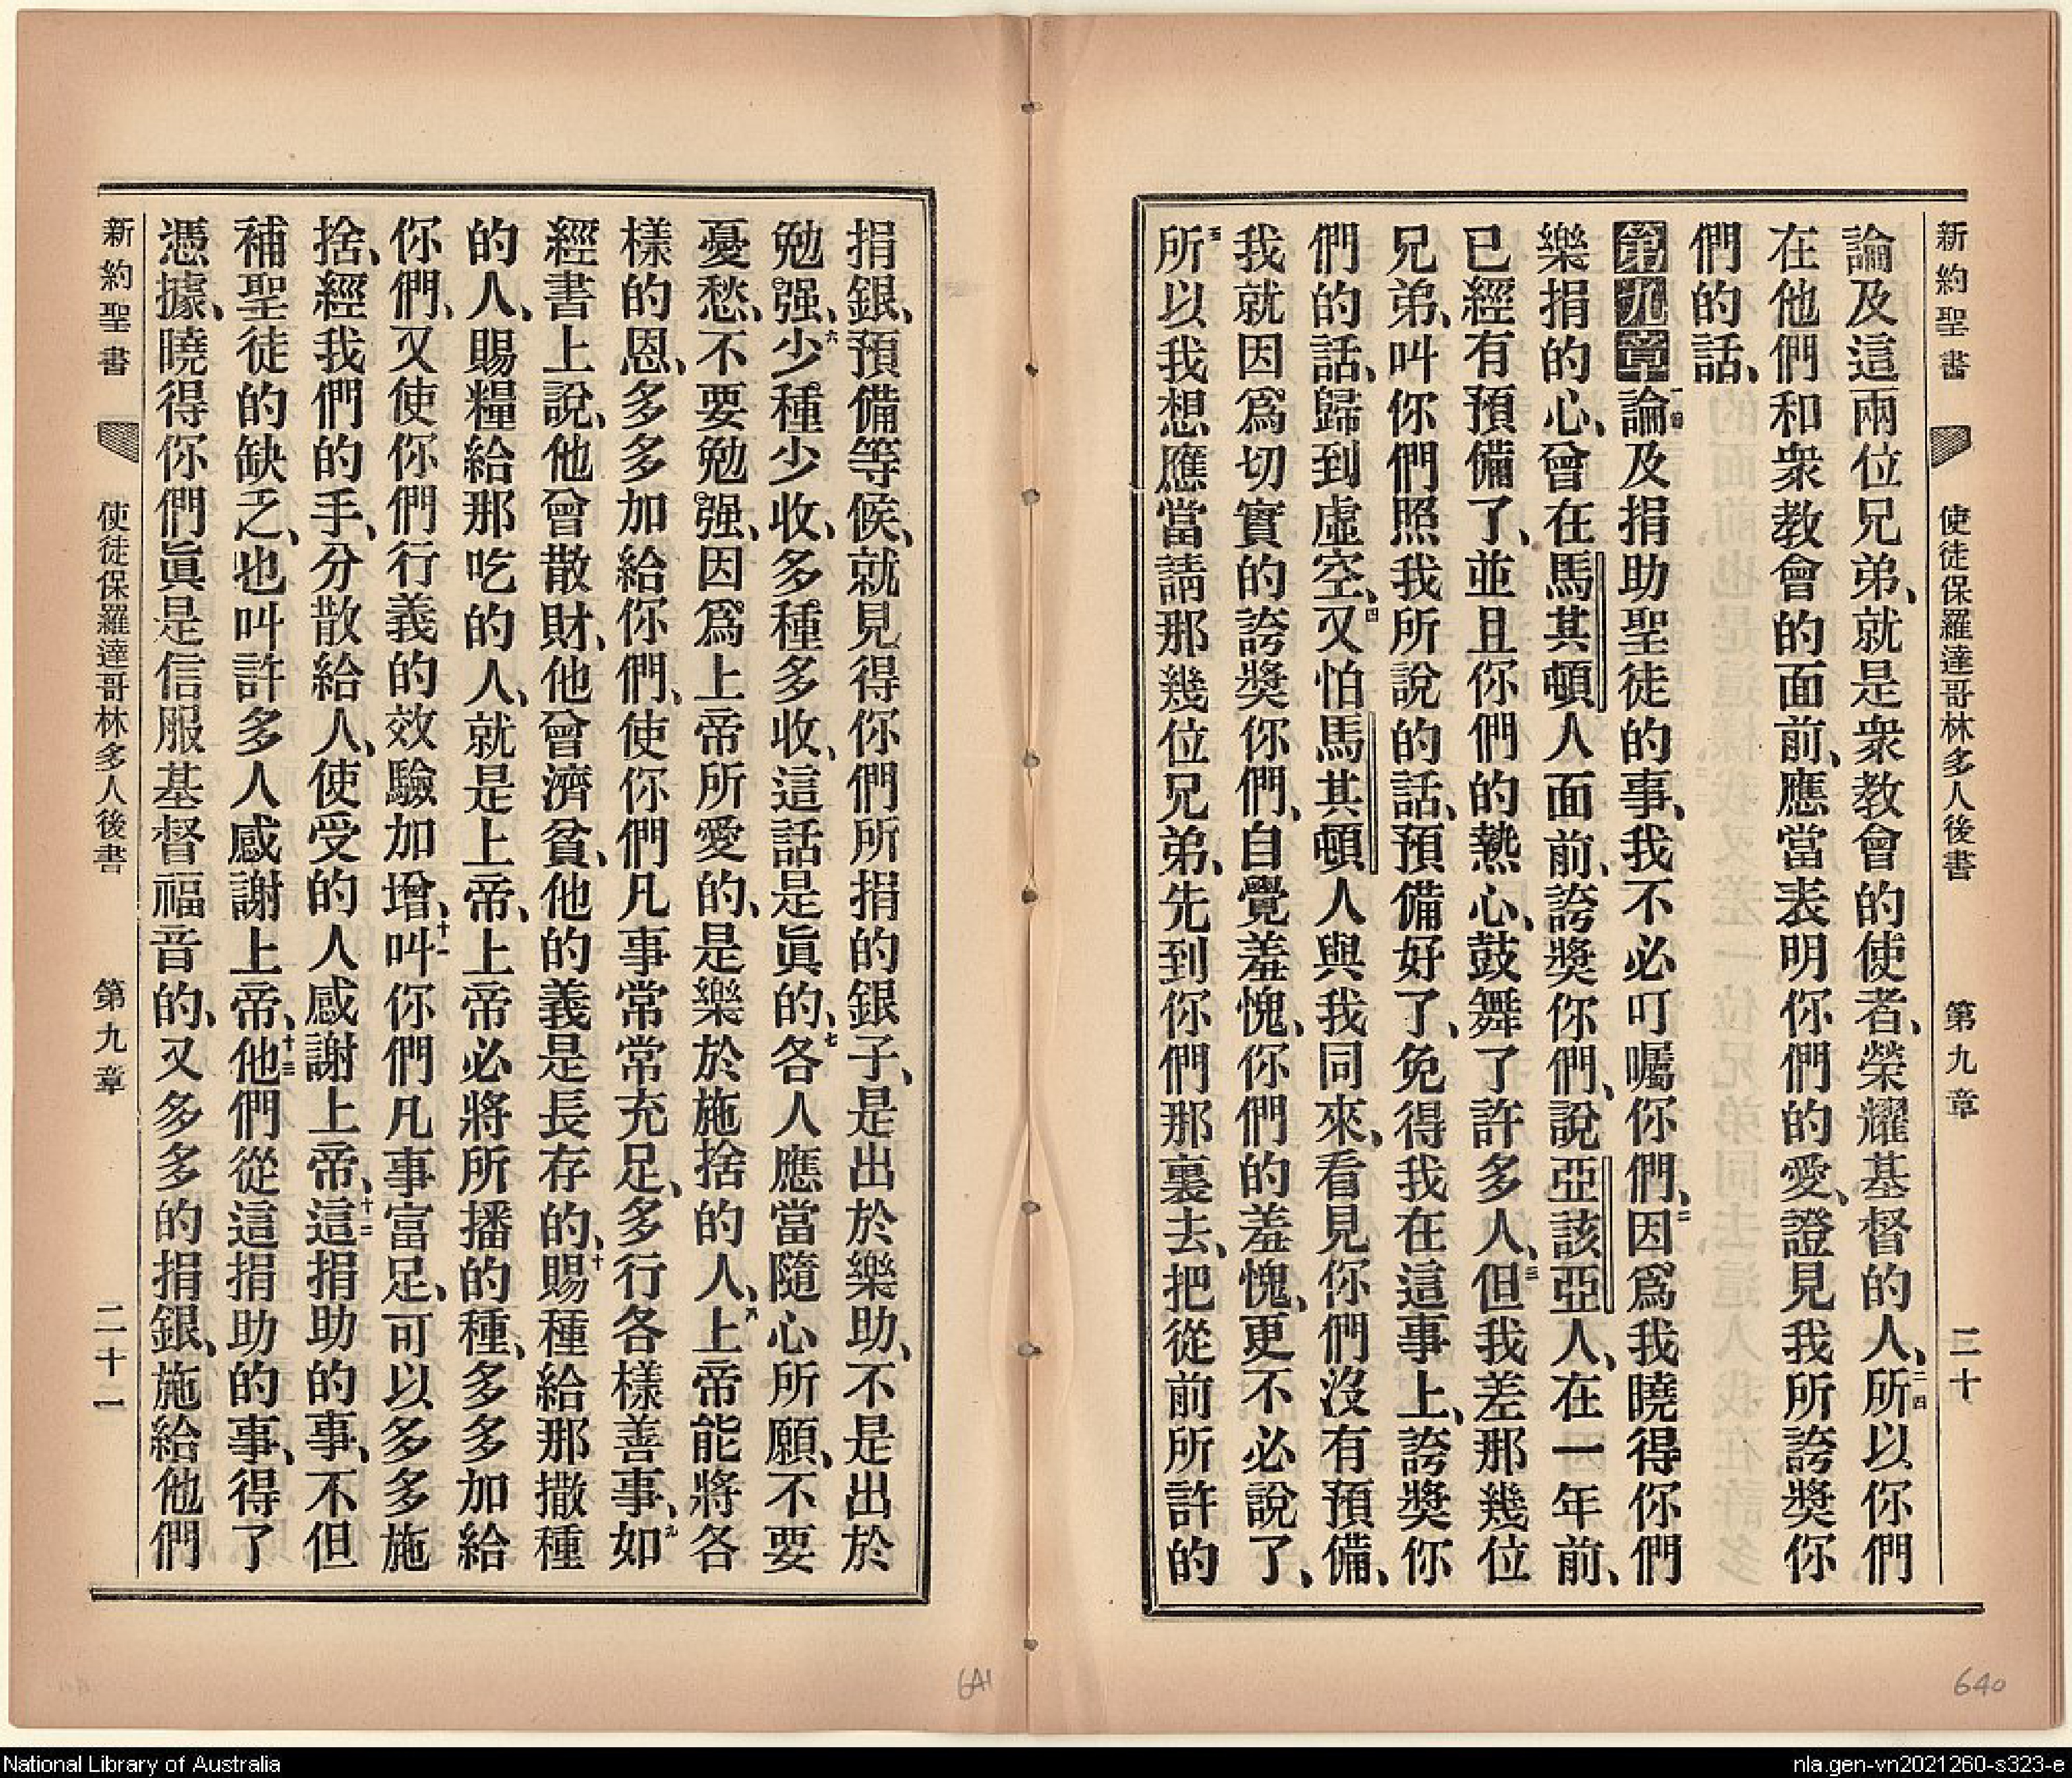 新約聖書 使徒保羅達哥林多人後書 第九章 二十
論及這兩位兄弟、就是衆教會的使者、榮耀基督的人、二四所以你們
在他們和衆教會的面前、應當表明你們的愛、證見我所誇獎你
們的話、
第九章一節論及捐助聖徒的事、我不必叮囑你們、二因爲我曉得你們
樂捐的心、曾在馬其頓人面前、誇獎你們、說亞該亞人、在一年前、
已經有預備了、並且你們的熱心、鼓舞了許多人、三但我差那幾位
兄弟、叫你們照我所說的話、預備好了、免得我在這事上、誇獎你
們的話、歸到虛空、四又怕馬其頓人與我同來、看見你們沒有預備、
我就因爲切實的誇獎你們、自覺羞愧、你們的羞愧、更不必說了、
五所以我想應當請那幾位兄弟、先到你們那裏去、把從前所許的
640
捐銀、預備等候、就見得你們所捐的銀子、是出於樂助、不是出於
勉强、六少種少收、多種多收、這話是眞的、七各人應當隨心所願、不要
憂愁、不要勉强、因爲上帝所愛的、是樂於施捨的人、八上帝能將各
樣的恩、多多加給你們、使你們凡事常常充足、多行各樣善事、九如
經書上說、他曾散財、他曾濟貧、他的義是長存的、十賜種給那撒種
的人、賜糧給那吃的人、就是上帝、上帝必將所播的種、多多加給
你們、又使你們行義的效驗加增、十一叫你們凡事富足、可以多多施
捨、經我們的手、分散給人、使受的人感謝上帝、十二這捐助的事、不但
補聖徒的缺乏、也叫許多人感謝上帝、十三他們從這捐助的事、得了
憑據、曉得你們眞是信服基督福音的、又多多的捐銀、施給他們
新約聖書 使徒保羅達哥林多人後書 第九章 二十一
641
National Library of Australia
nla.gen-vn2021260-s323-e